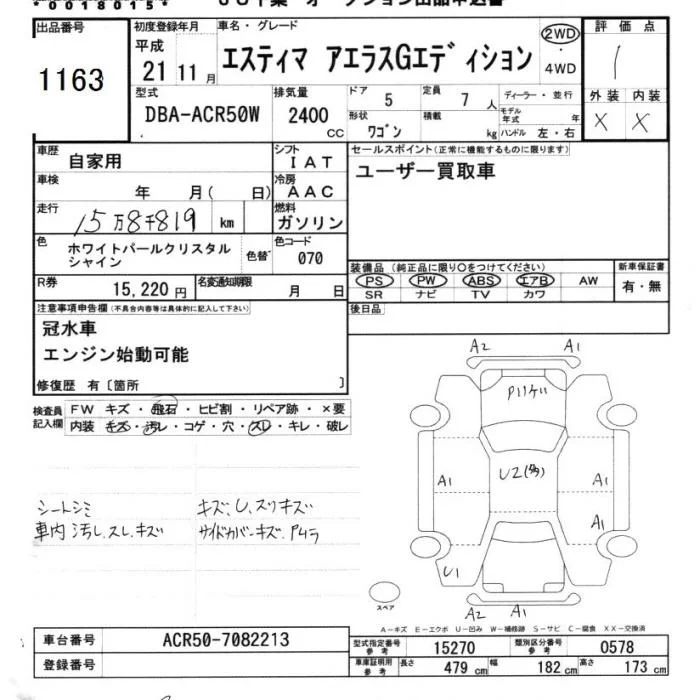 *0018015*
出品番号 初度登録年月 車名・グレード 評価点
1163 平成 21年11月 エスティマ アエラスGエディション 2WD・4WD 1
型式 排気量 ドア 定員 ディーラー・並行 外装 内装
DBA-ACR50W 2400CC 5 7人 モデル年式 年 X X
形状 ワゴン 積載 kg ハンドル 左・右
車歴 自家用 シフト IAT セールスポイント(正常に機能するものに限ります)
車検 年 月( 日) 冷房 AAC ユーザー買取車
走行 15万8千819km 燃料 ガソリン
色 ホワイトパールクリスタルシャイン 色替 色コード 070
装備品(純正品に限り○をつけてください) 新車保証書
R券 15,220円 名変通知期限 月 日
PS PW ABS エアB AW 有・無
SR ナビ TV カワ
注意事項申告欄(不具合内容等は具体的に記入して下さい) 後日品
冠水車
エンジン始動可能
修復歴 有〔箇所 〕
検査員記入欄 FW キズ・飛石・ヒビ割・リペア跡・×要
内装 キズ・汚レ・コゲ・穴・スレ・キレ・破レ
シートシミ キズ、U、スリキズ
車内 汚し.スレ.キズ サイドカバーキズ.
A2 A1
A1
U2
A1
A1
U1
A2 A1
スペア
A-キズ E-エクボ U-凹み W-補修跡 S-サビ C-腐食 XX-交換済
車台番号 ACR50-7082213 型式指定番号 参考 15270 類別区分番号 参考 0578
登録番号 車庫証明用 参考 長さ 479cm 幅 182cm 高さ 173cm